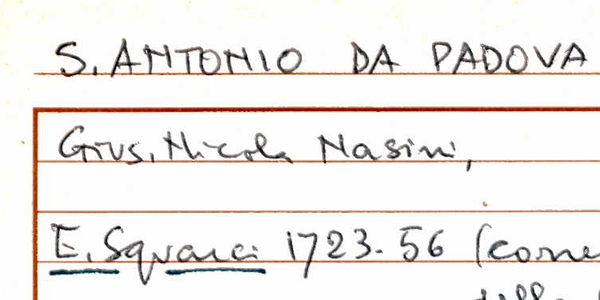 S. ANTONIO DA PADOVA
Gius. Nicola Nasini,
E. Squarci 1723-56 (come